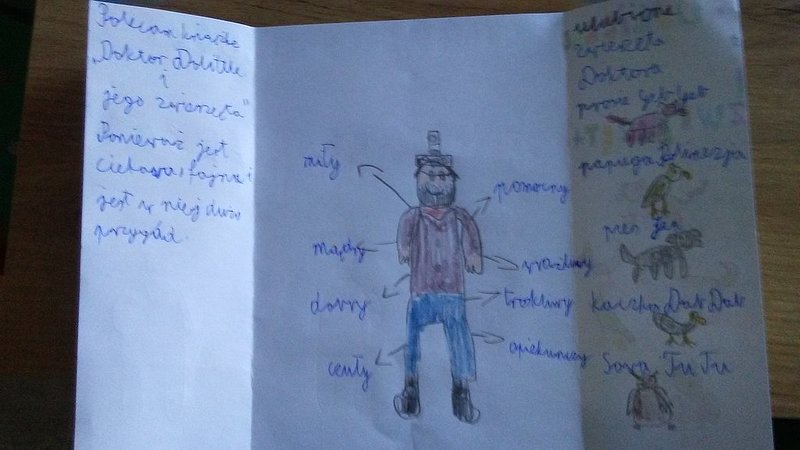 Polecam książkę
„Doktor Dolittle
i
jego zwierzęta"
Ponieważ jest
ciekawa, fajna i
jest w niej dużo
przygód.
miły
mądry
dobry
czuły
pomocny
wrażliwy
troskliwy
opiekuńczy
ulubione
zwierzęta
Doktora
prosię Geb Geb
papuga Polinezja
pies Jip
kaczka Dab Dab
Sowa Tu Tu